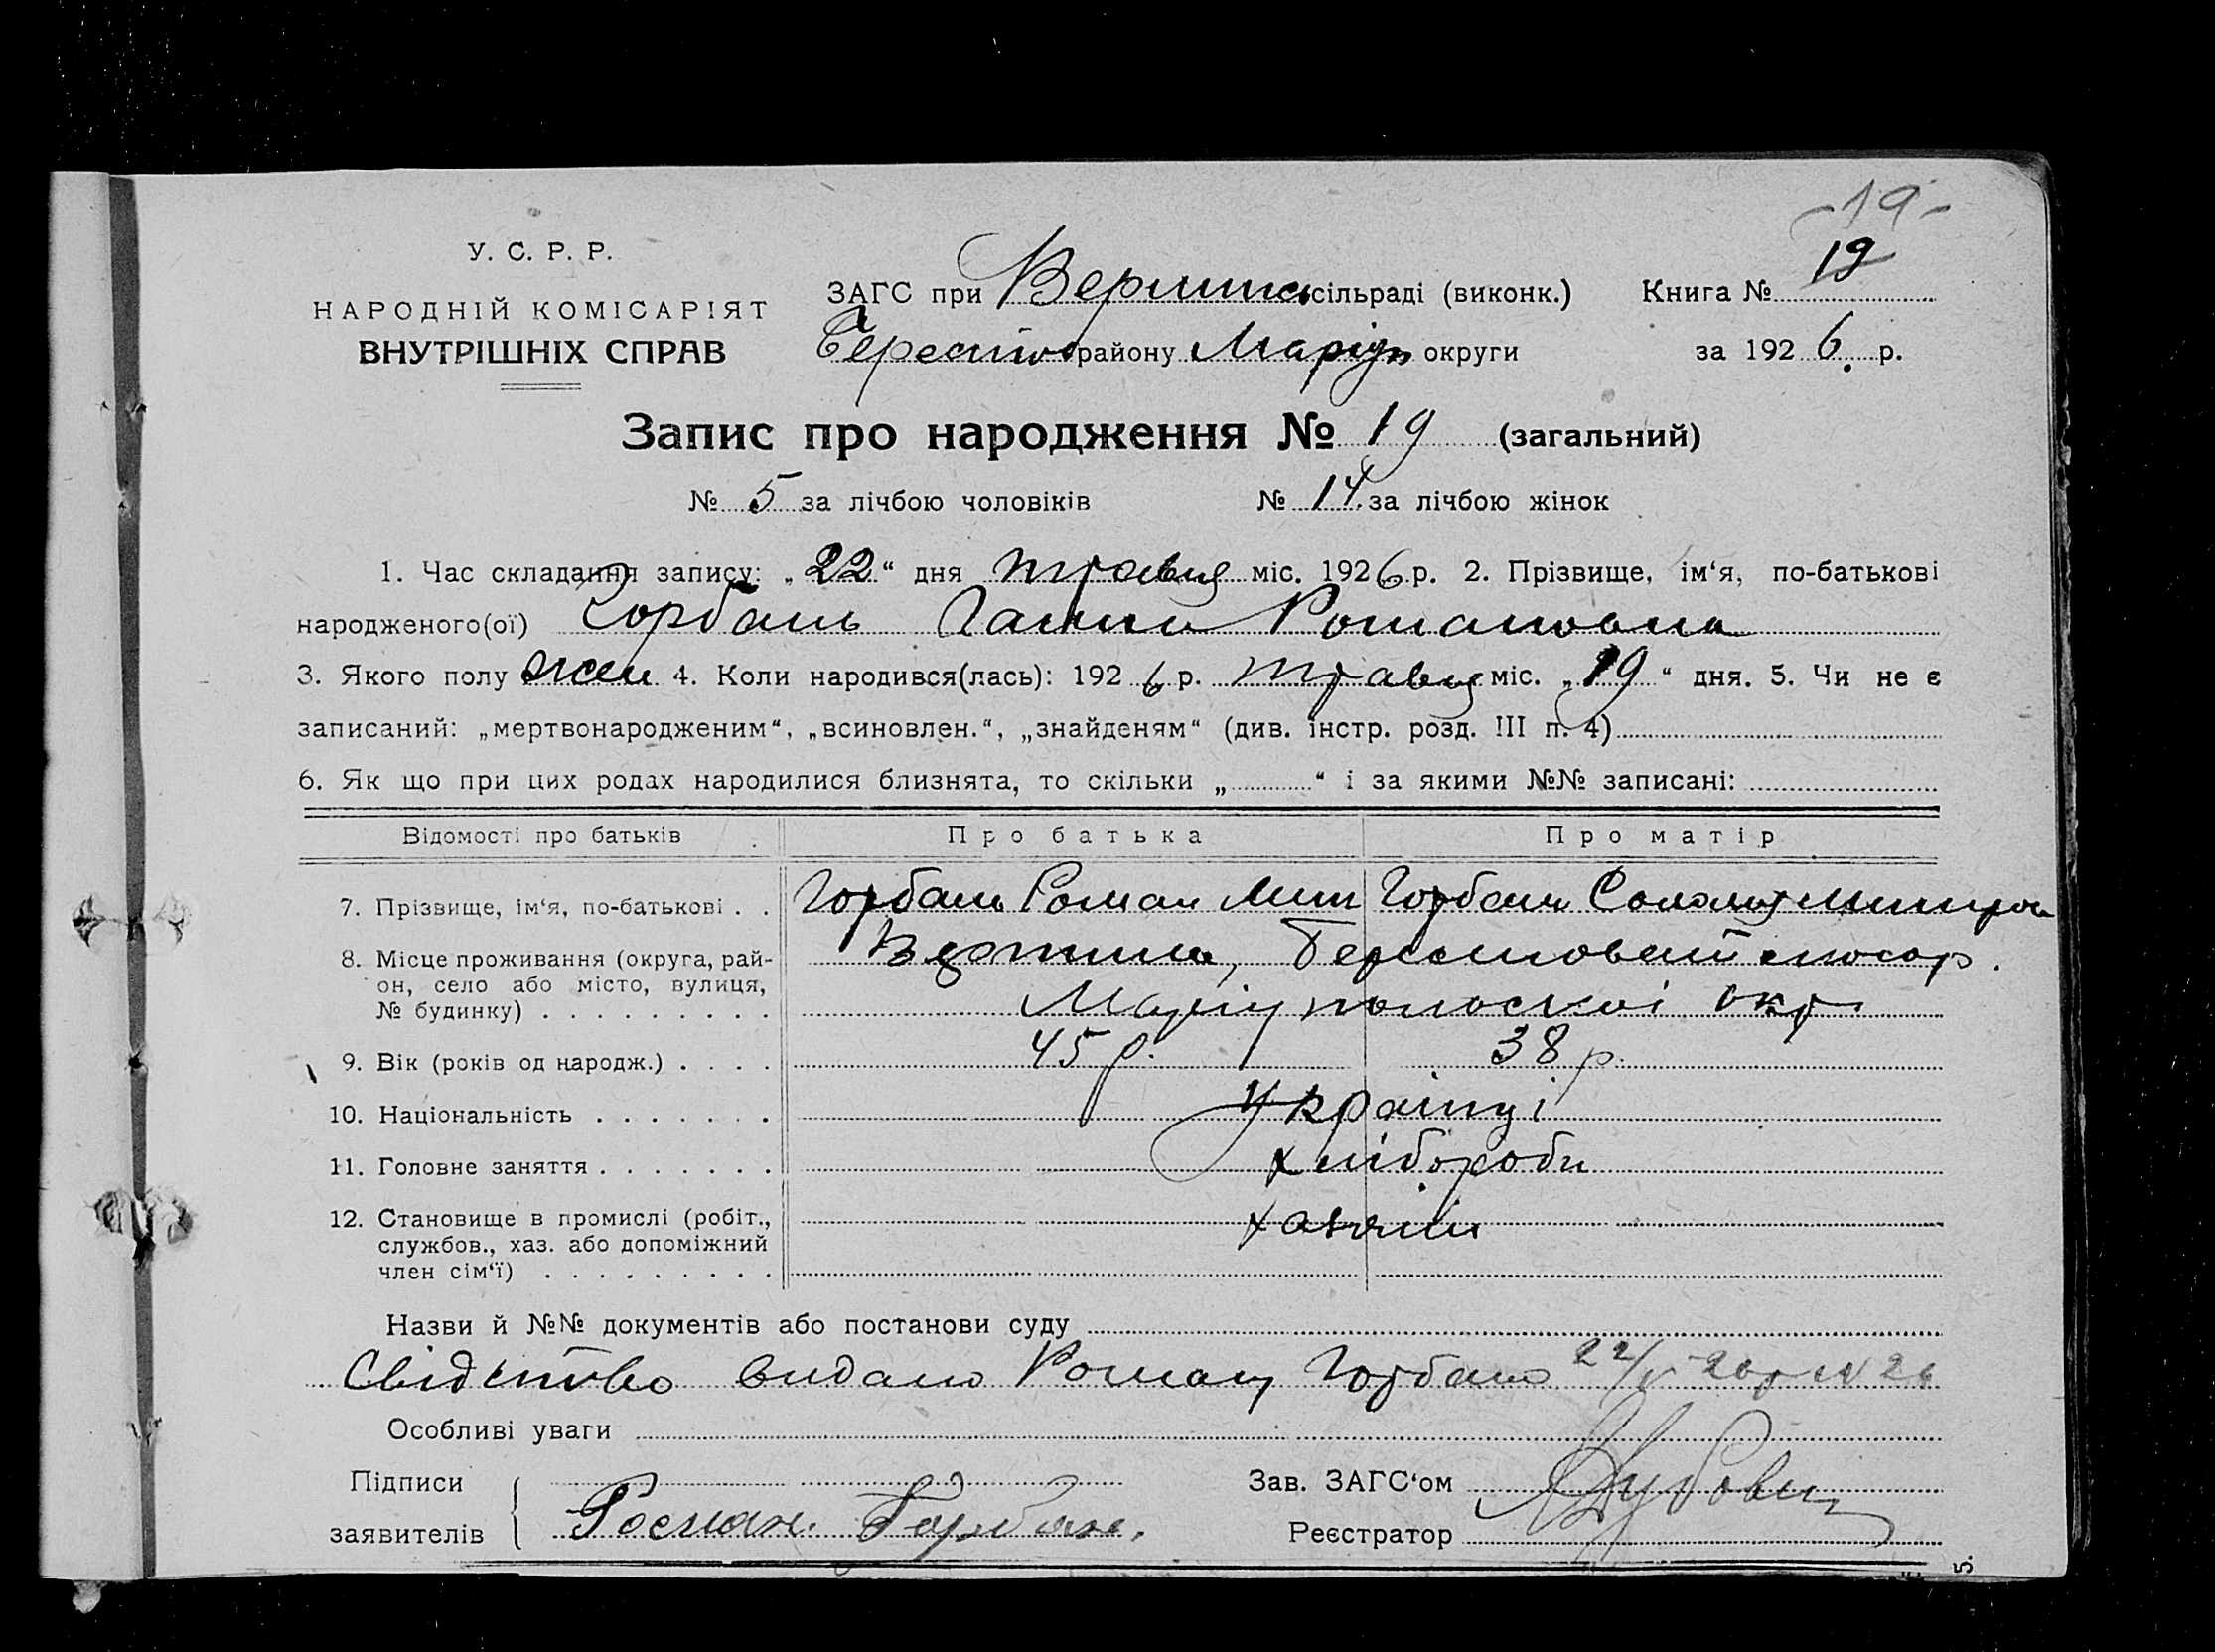 -19-
У. С. Р. Р.
НАРОДНІЙ КОМІСАРІЯТ
ВНУТРІШНІХ СПРАВ
ЗАГС при Вершинс сільраді (виконк.) Книга № 19
Берестов району Маріуп округи за 1926 р.
Запис про народження № 19 (загальний)
№ 5 за лічбою чоловіків № 14 за лічбою жінок
1. Час складання запису: „22“ дня травця міс. 1926 р. 2. Прізвище, ім‘я, по-батькові
народженого(ої) Горбань Ганна Романовна
3. Якого полу жен 4. Коли народився(лась): 1926 р. травця міс. „19“ дня. 5. Чи не є
записаний: „мертвонародженим“, „всиновлен.“, „знайденям“ (див. інстр. розд. III п. 4)
6. Як що при цих родах народилися близнята, то скільки „ “ і за якими №№ записані:
Відомості про батьків Про батька Про матір
7. Прізвище, ім‘я, по-батькові . . Горбань Роман Мит Горбань Соломія
8. Місце проживання (округа, рай-
он, село або місто, вулиця,
№ будинку) . . . . . . . . . Маріупольскої окр
9. Вік (років од народж.) . . . . 45 р. 38 р.
10. Національність . . . . . . . Українці
11. Головне заняття . . . . . . . хлібороби
12. Становище в промислі (робіт., хазяїни
службов., хаз. або допоміжний
член сім‘ї) . . . . . . . . .
Назви й №№ документів або постанови суду
Свідзтво видано Роману Горбаню 22/V 26р N 26
Особливі уваги
Підписи
заявителів Роман Горбан.
Зав. ЗАГС‘ом
Реєстратор